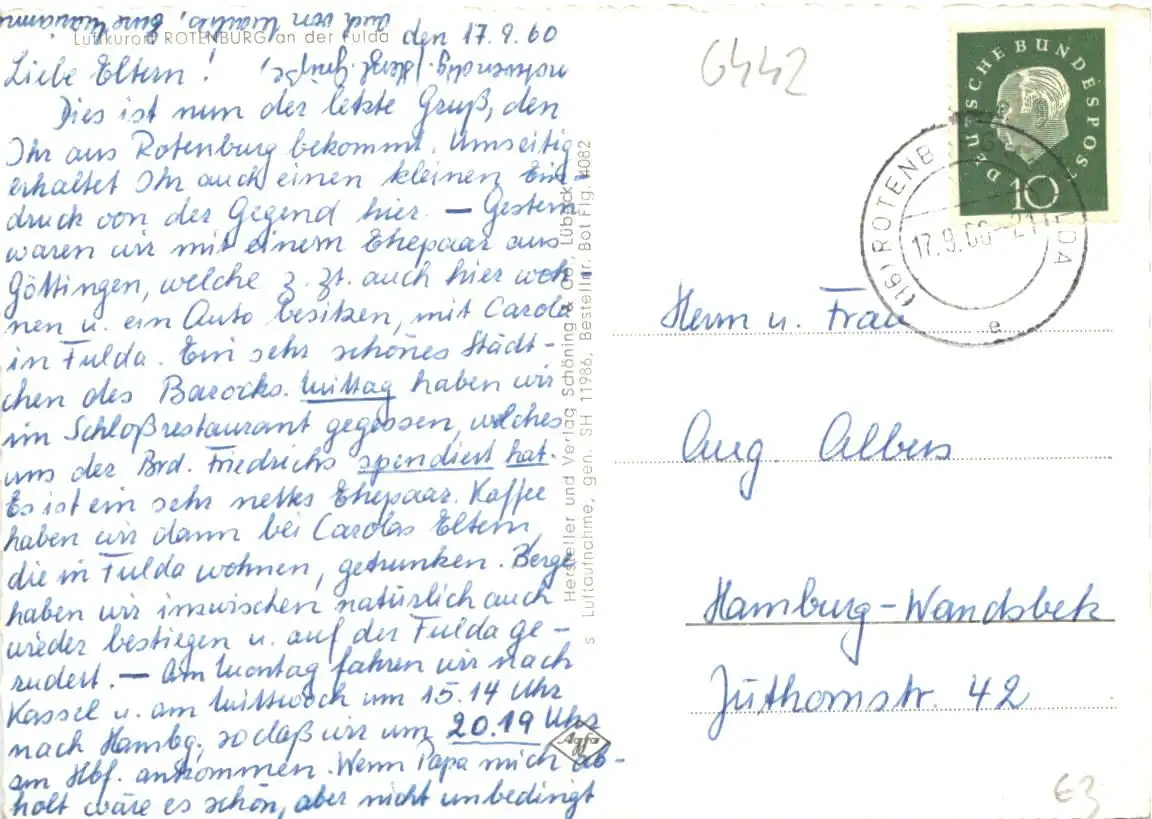 Luftkurort ROTENBURG an der Fulda
den 17.9.60
Liebe Eltern!
Dies ist nun der letzte Gruß, den
Ihr aus Rotenburg bekommt. Umseitig
erhaltet Ihr auch einen kleinen Ein-
druck von der Gegend hier. — Gestern
waren wir mit einem Ehepaar aus
Göttingen, welche z. Zt. auch hier woh
nen u. ein Auto besitzen, mit Carola
in Fulda. Ein sehr schönes Städt-
chen des Barocks. Mittag haben wir
im Schloßrestaurant gegessen, welches
uns der Brd. Friedrichs spendiert hat.
Es ist ein sehr nettes Ehepaar. Kaffee
haben wir dann bei Carolas Eltern,
die in Fulda wohnen, getrunken. Berge
haben wir inzwischen natürlich auch
wieder bestiegen u. auf der Fulda ge-
rudert. — Am Montag fahren wir nach
Kassel u. am Mittwoch um 15.14 Uhr
nach Hambg., sodaß wir um 20.19 Uhr
am Hbf. ankommen. Wenn Papa mich ab-
holt wäre es schön, aber nicht unbedingt
notwendig. Herzl. Grüße,
auch von Walter, Eure
Hersteller und Verlag Schöning & Co., Lübeck
s Luftaufnahme, gen. SH 11986, Bestellnr. Bot Flg. 4082
Agfa
6442
DEUTSCHE BUNDESPOST
10
(16) ROTENBURG FULDA
17.9.60-21
e
Herrn u. Frau
Aug. Albers
Hamburg-Wandsbek
Jüthornstr. 42
€3